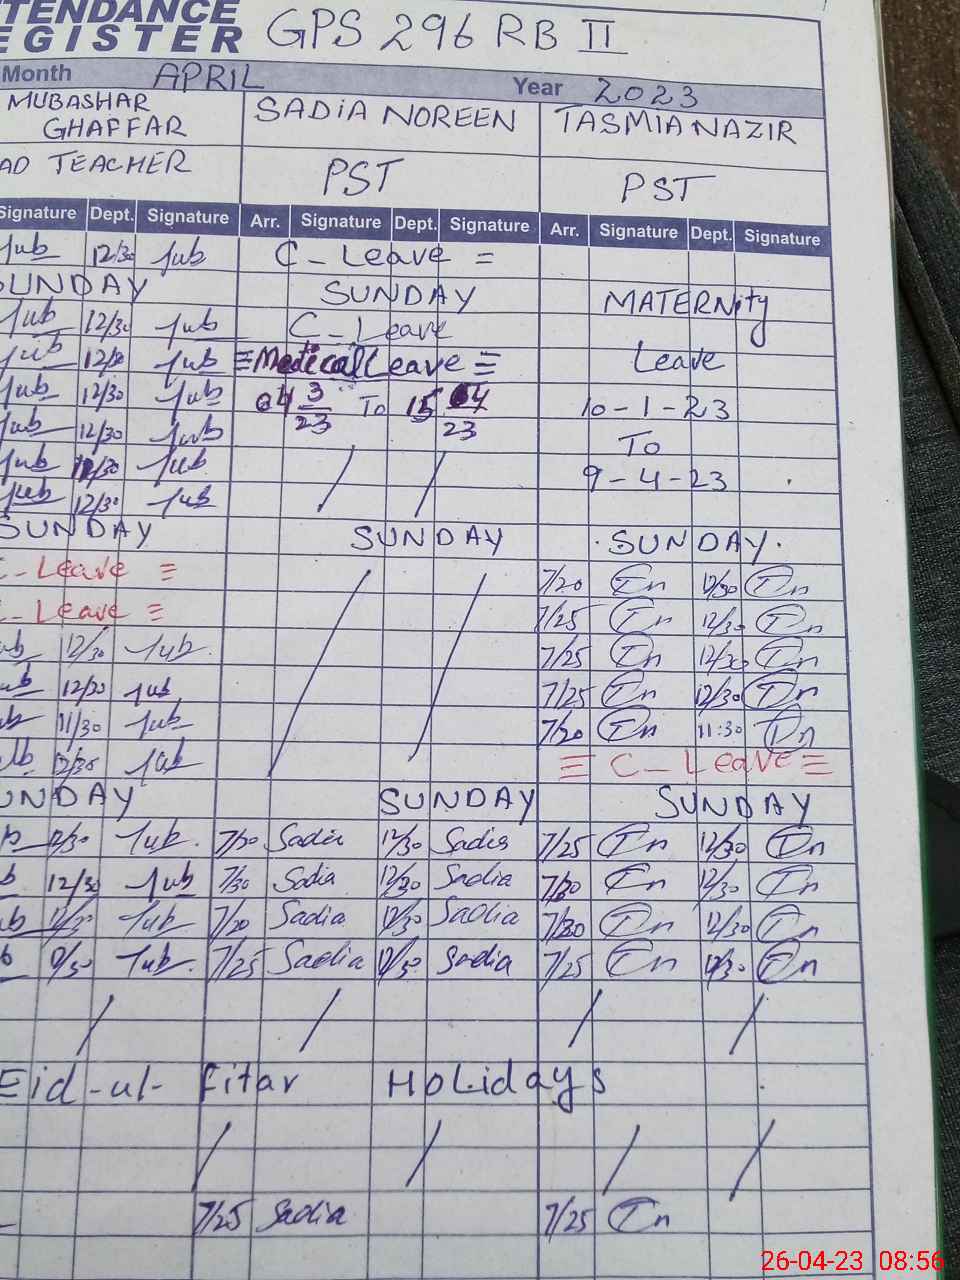 TTENDANCE
EGISTER GPS 296 RB II
Month APRIL Year 2023
MUBASHAR GHAFFAR SADIA NOREEN TASMIA NAZIR
AD TEACHER PST PST
Signature Dept. Signature Arr. Signature Dept. Signature Arr. Signature Dept. Signature
Jub 12/30 Jub C-Leave =
SUNDAY SUNDAY MATERNity
Jub 12/30 Jub C-Leave
Jub 12/30 Jub Medical Leave Leave
Jub 12/30 Jub 04 3/23 To 15 04/23 10-1-23
Jub 12/30 Jub To
Jub 12/30 Jub 9-4-23
Jub 12/30 Jub
SUNDAY SUNDAY SUNDAY
C-Leave 7/20 Tn 12/30 Tn
C-Leave 7/25 Tn 12/30 Tn
ub 12/30 Jub 7/25 Tn 12/30 Tn
ub 12/30 Jub 7/25 Tn 12/30 Tn
ub 11/30 Jub 7/20 Tn 11:30 Tn
ub 12/30 Jub C-Leave
UNDAY SUNDAY SUNDAY
12/30 Jub 7/20 Sadia 12/30 Sadia 7/25 Tn 12/30 Tn
b 12/30 Jub 7/30 Sadia 12/30 Sadia 7/20 Tn 12/30 Tn
ub 12/30 Jub 7/20 Sadia 12/30 Sadia 7/20 Tn 12/30 Tn
b 12/30 Jub 7/25 Sadia 12/30 Sadia 7/25 Tn 12/30 Tn
Eid-ul- Fitar Holidays
7/25 Sadia 7/25 Tn
26-04-23 08:56